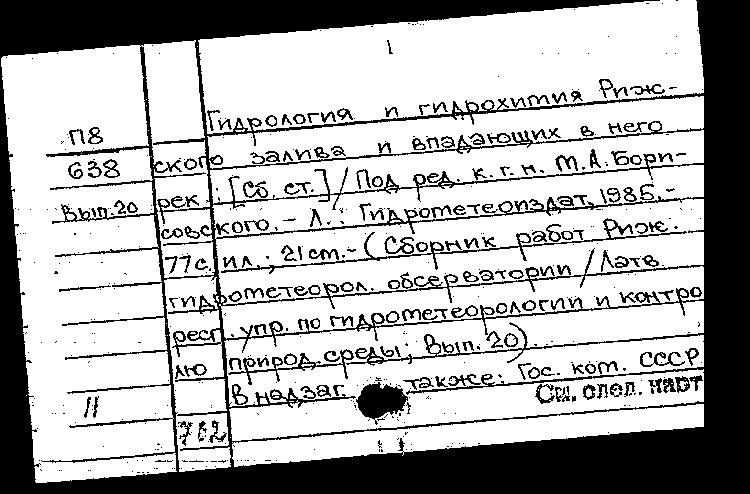 1
Гидрология и гидрохимия Риж-
П8
638 ского залива и впадающих в него
Вып.20 рек : [Сб. ст.] / Под ред. к. г. н. М.А. Бори-
совского. - Л. : Гидрометеоиздат, 1985.-
77с. ил. ; 21 cm. - (Сборник работ Риж.
гидрометеорол. обсерватории / Латв.
респ. упр. по гидрометеорологии и контро
лю природ. среды; Вып. 20).
11 В надзаг. также: Гос. ком. СССР
См. след. карт
762